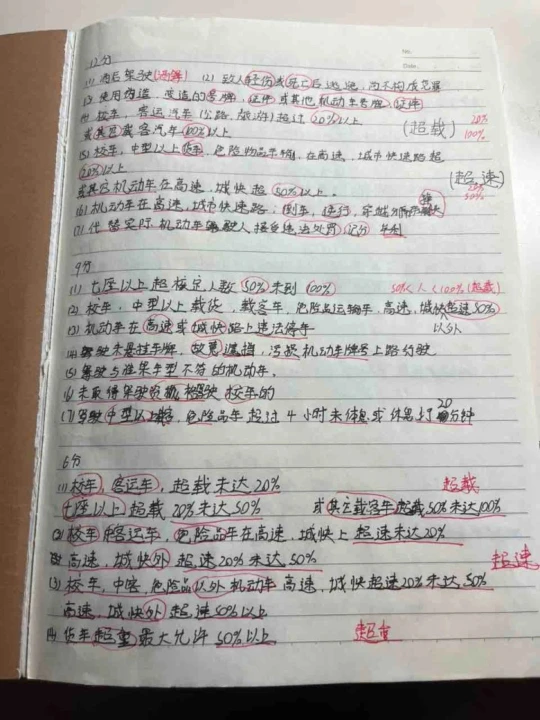 No.
Date.
12分
(1) 酒后驾驶 (2) 致人轻伤或死亡后逃逸,尚不构成犯罪
(3) 使用伪造、变造的号牌,证件或其他机动车号牌,证件
(4) 校车,客运汽车(公路,旅游)超过20%以上 (超载) 20%
或其它载客汽车100%以上 100%
(5) 校车,中型以上货车,危险物品车辆,在高速,城市快速路超
20%以上 (超速)
或其它机动车在高速,城快超50%以上. 50%
(6) 机动车在高速,城市快速路:倒车,逆行,穿越
(7) 代替实际机动车驾驶人接受违法处罚(记分)牟利
9分
(1) 七座以上超核定人数50%未到100% 50%<人<100%(超载)
(2) 校车,中型以上载货,载客车,危险品运输车,高速,城快超速50%
(3) 机动车在高速或城快路上违法停车 以外
(4) 驾驶未悬挂车牌,故意遮挡,污损机动车牌号上路
(5) 驾驶与准驾车型不符的机动车.
(6) 未取得驾驶资格驾驶校车的
(7) 驾驶中型以上,危险品车超过4小时未休息或休息 20分钟
6分
(1) 校车,客运车,超载未达20% 超载
七座以上超载20%未达50% 或其它载客车超载50%未达100%
(2) 校车,客运车,危险品车在高速,城快上超速未达20%
高速,城快外超速20%未达50% 超速
(3) 校车,中客,危险品以外机动车高速,城快超速20%未达50%
高速,城快外超速50%以上
(4) 货车超重最大允许50%以上 超重